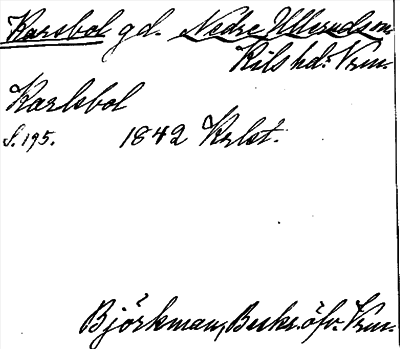 Karsbol gd. Nedre Ullerud sn.
Kils hd: Vrm.
Karlsbol
S. 195. 1842 Krlst.
Björkman, Beskr. öfv. Vrm.